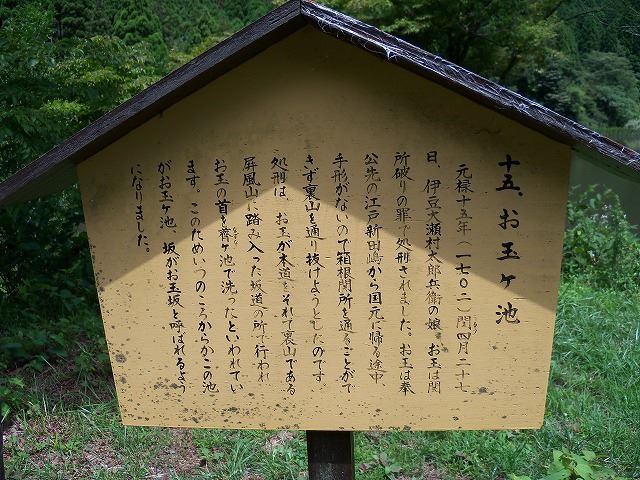 十五、お玉ヶ池
元禄十五年(一七〇二)閏四月二十七
日、伊豆大瀬村太郎兵衛の娘、お玉は関
所破りの罪で処刑されました。お玉は奉
公先の江戸新田嶋から国元に帰る途中
手形がないので箱根関所を通ることがで
きず裏山を通り抜けようとしたのです。
処刑は、お玉が本道をそれて裏山である
屏風山に踏み入った坂道の所で行われ
お玉の首を薺ヶ池で洗ったといわれてい
ます。このためいつのころからかこの池
がお玉ヶ池、坂がお玉坂と呼ばれるよう
になりました。